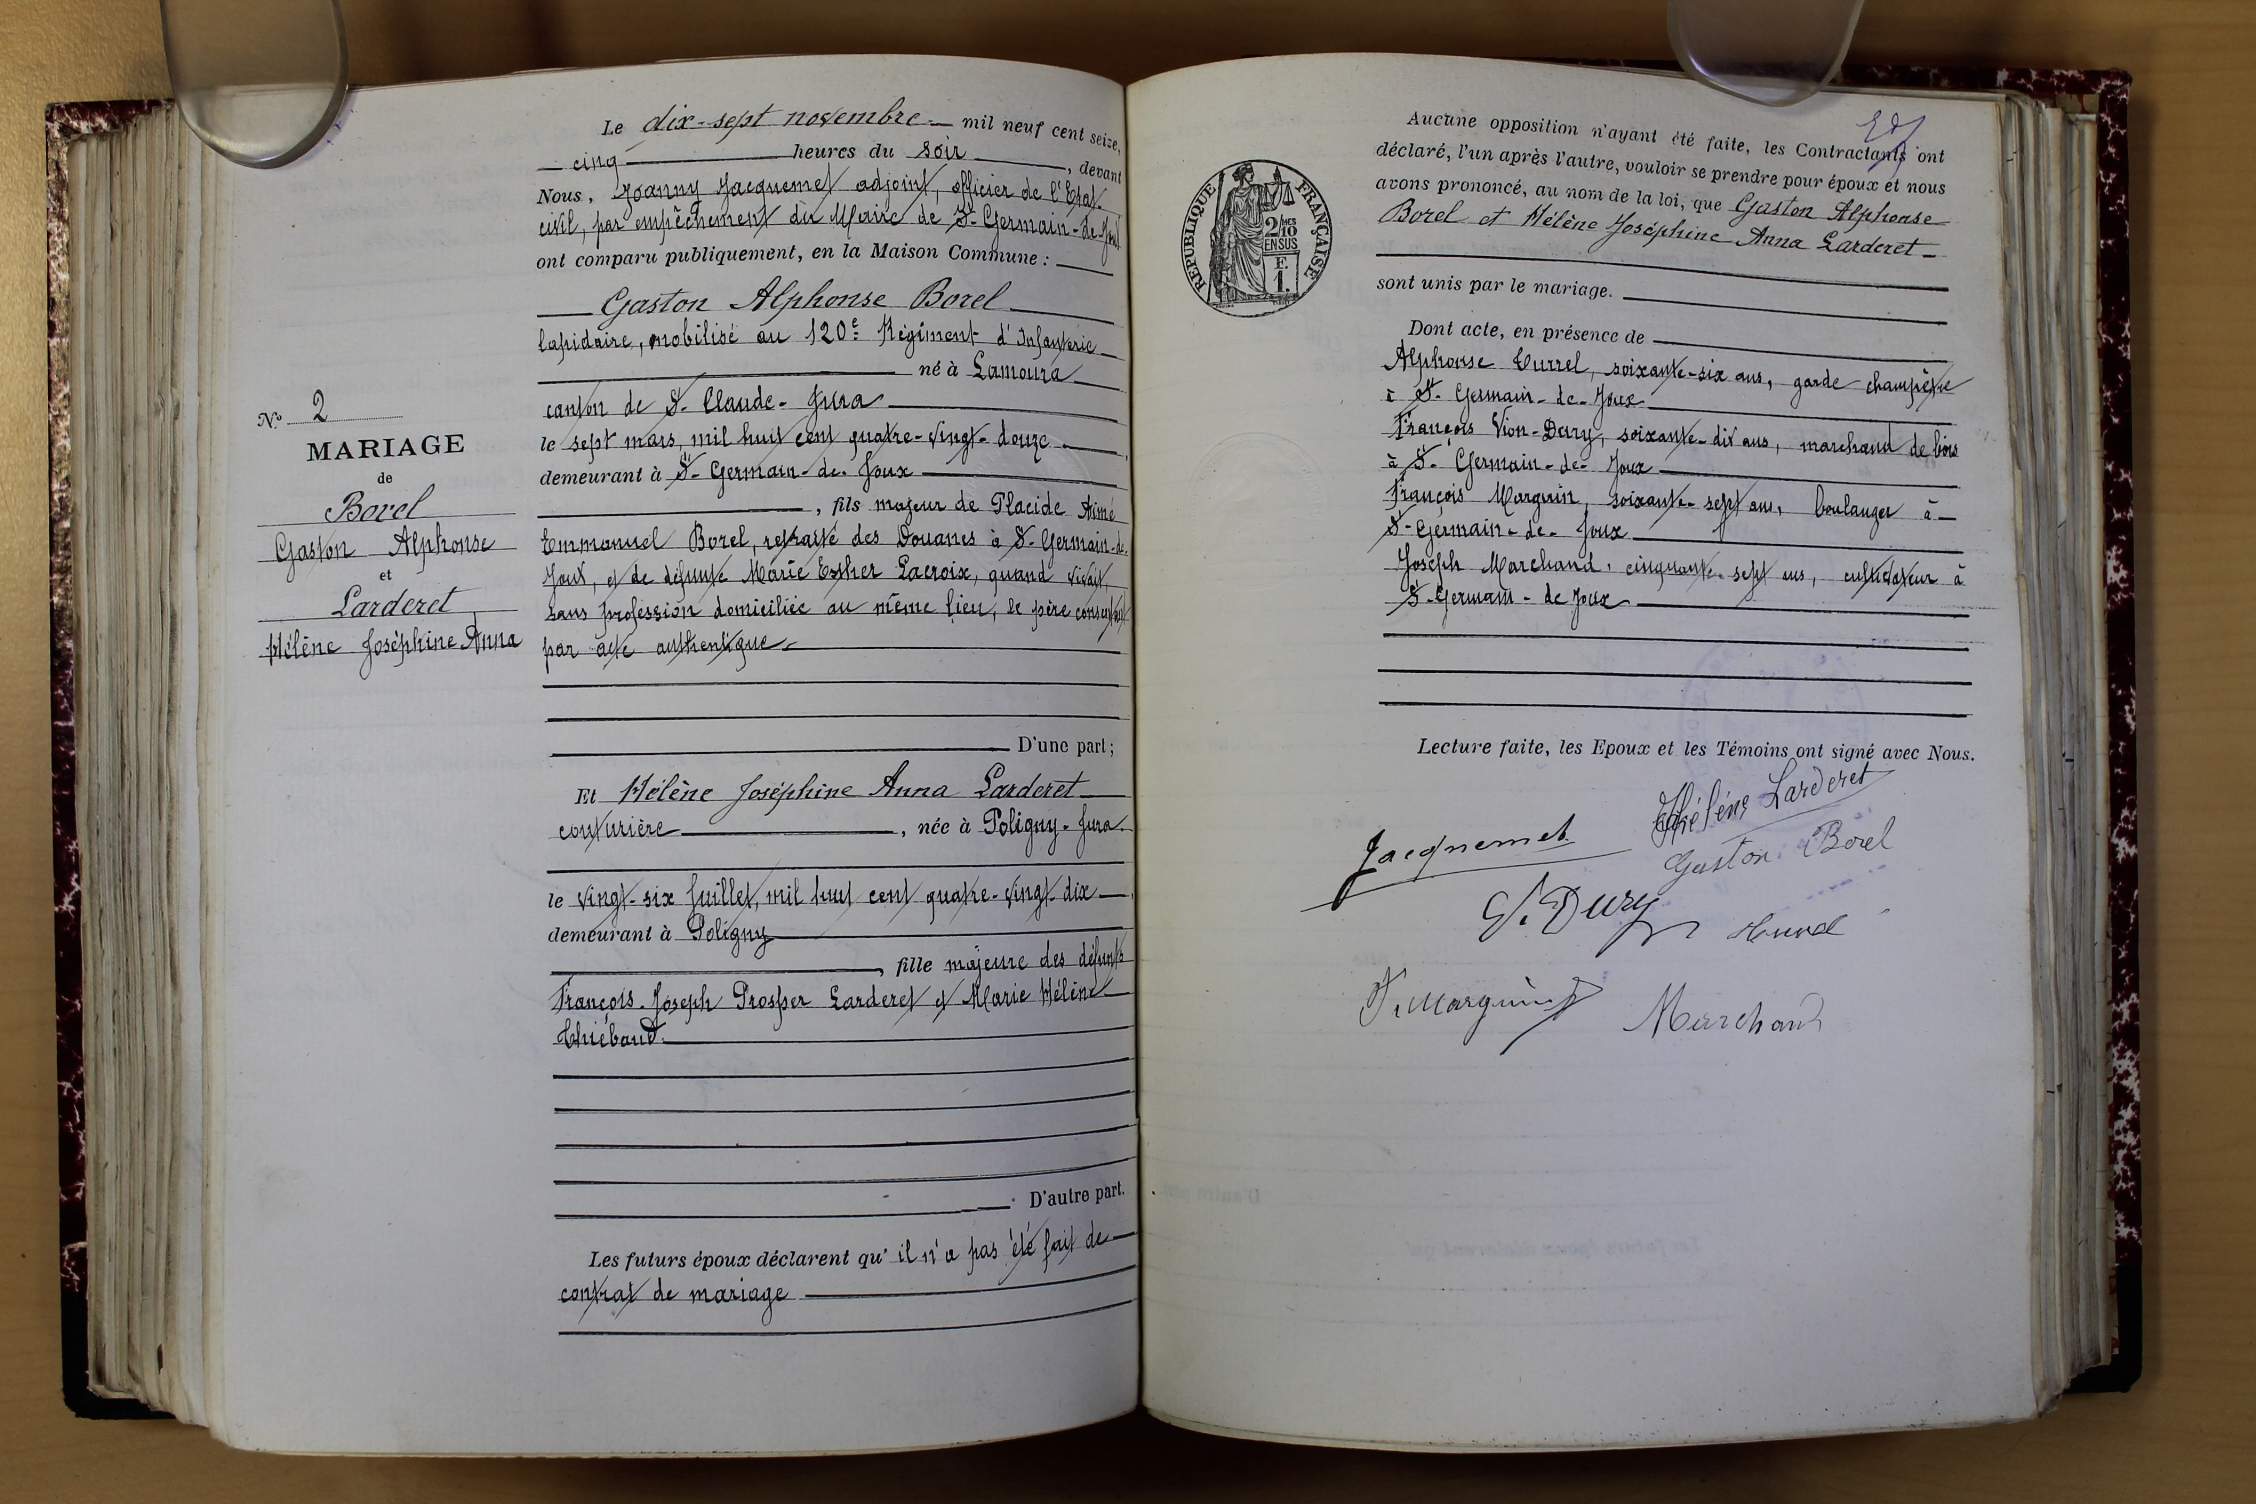 Le dix-sept novembre mil neuf cent seize,
cinq heures du soir, devant
Nous, Joanny Jacquemet adjoint, officier de l'Etat-
civil, par empêchement du Maire de St-Germain-de-Joux
ont comparu publiquement, en la Maison Commune :
Gaston Alphonse Borel
lapidaire, mobilisé au 120e Régiment d'Infanterie
né à Lamoura
canton de St-Claude-Jura
le sept mars, mil huit cent quatre-vingt-douze
demeurant à St-Germain-de-Joux
, fils majeur de Placide Aimé
Emmanuel Borel, retraité des Douanes à St-Germain-de-
Joux, et de défunte Marie Esther Lacroix, quand vivait,
sans profession domiciliée au même lieu, le père consentant
par acte authentique.
D'une part ;
Et Hélène Joséphine Anna Larderet
couturière, née à Poligny-Jura.
le vingt-six Juillet, mil huit cent quatre-vingt-dix
demeurant à Poligny
, fille majeure des défunts
François-Joseph Prosper Larderet et Marie Hélène
Thiébaud.
D'autre part.
Les futurs époux déclarent qu'il n'a pas été fait de
contrat de mariage
No 2
MARIAGE
de
Borel
Gaston Alphonse
et
Larderet
Hélène Joséphine Anna
Aucune opposition n'ayant été faite, les Contractants ont
déclaré, l'un après l'autre, vouloir se prendre pour époux et nous
avons prononcé, au nom de la loi, que Gaston Alphonse
Borel et Hélène Joséphine Anna Larderet
sont unis par le mariage.
Dont acte, en présence de
Alphonse Turrel, soixante-six ans, garde champêtre
à St-Germain-de-Joux
François Vion-Dury, soixante-dix ans, marchand de bois
à St-Germain-de-Joux
François Marguin, soixante-sept ans, boulanger à
St-Germain-de-Joux
Joseph Marchand, cinquante-sept ans, cultivateur à
St-Germain-de Joux
REPUBLIQUE FRANÇAISE
2/10 MES
EN SUS
F.
1.
Lecture faite, les Epoux et les Témoins ont signé avec Nous.
Hélène Larderet
Jacquemet
Gaston Borel
V. Dury
F. Marguin
Marchand